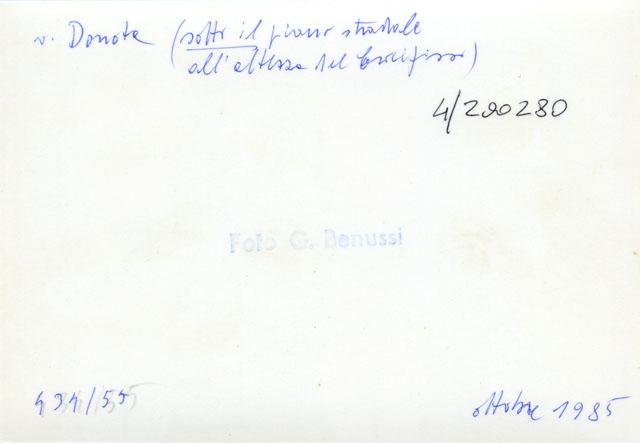 v. Donota (sotto il piano stradale
all'altezza del Crocifisso)
4/290280
Foto G. Benussi
434/55
ottobre 1985